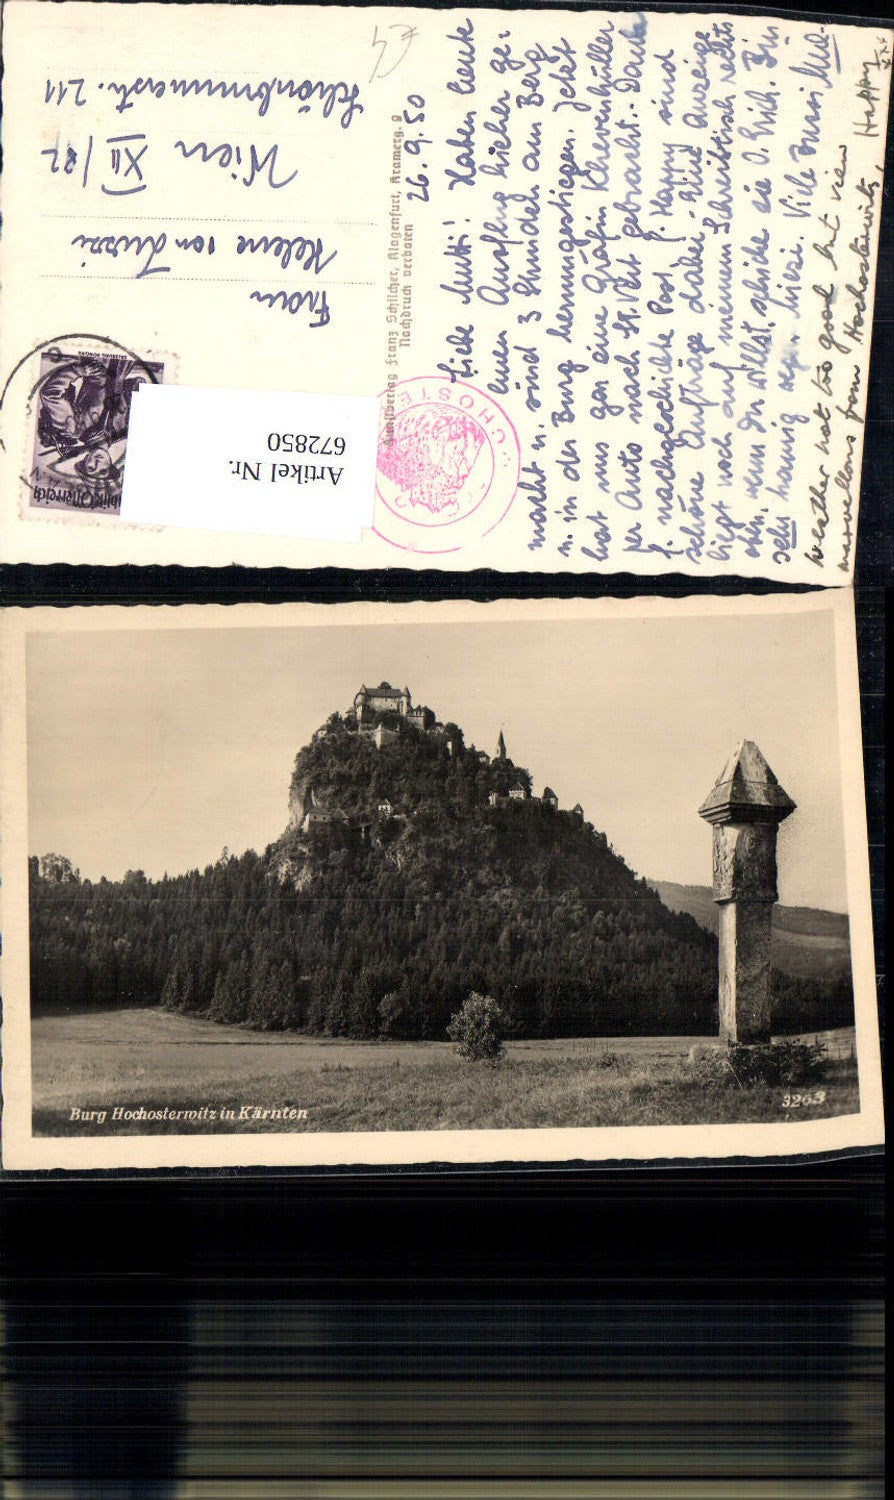 26.9.50
Liebe Mutti! Haben heute
einen Ausflug hieher ge-
macht u. sind 3 Stunden am Berg
u. in der Burg herumgestiegen. Jetzt
hat uns gar eine Gräfin Khevenhüller
per Auto nach St. Veit gebracht. Danke
f. nachgeschickte Post. f. Happy sind
schöne Aufträge dabei. Eine Anzeige
liegt noch auf meinem Schreibtisch rechts
oben, wenn Du willst, schicke sie O. Erich. Bin
sehr traurig
weather not too good but view
marvellous from Hochosterwitz, Happy
Frau
Helene von
Wien XII/82
Schönbrunnerstr. 211
Kunstverlag Franz Schilcher, Klagenfurt, Kramerg. 9
Nachdruck verboten
HOCHOSTE
Republik Österreich
Artikel Nr.
672850
Burg Hochosterwitz in Kärnten
3203